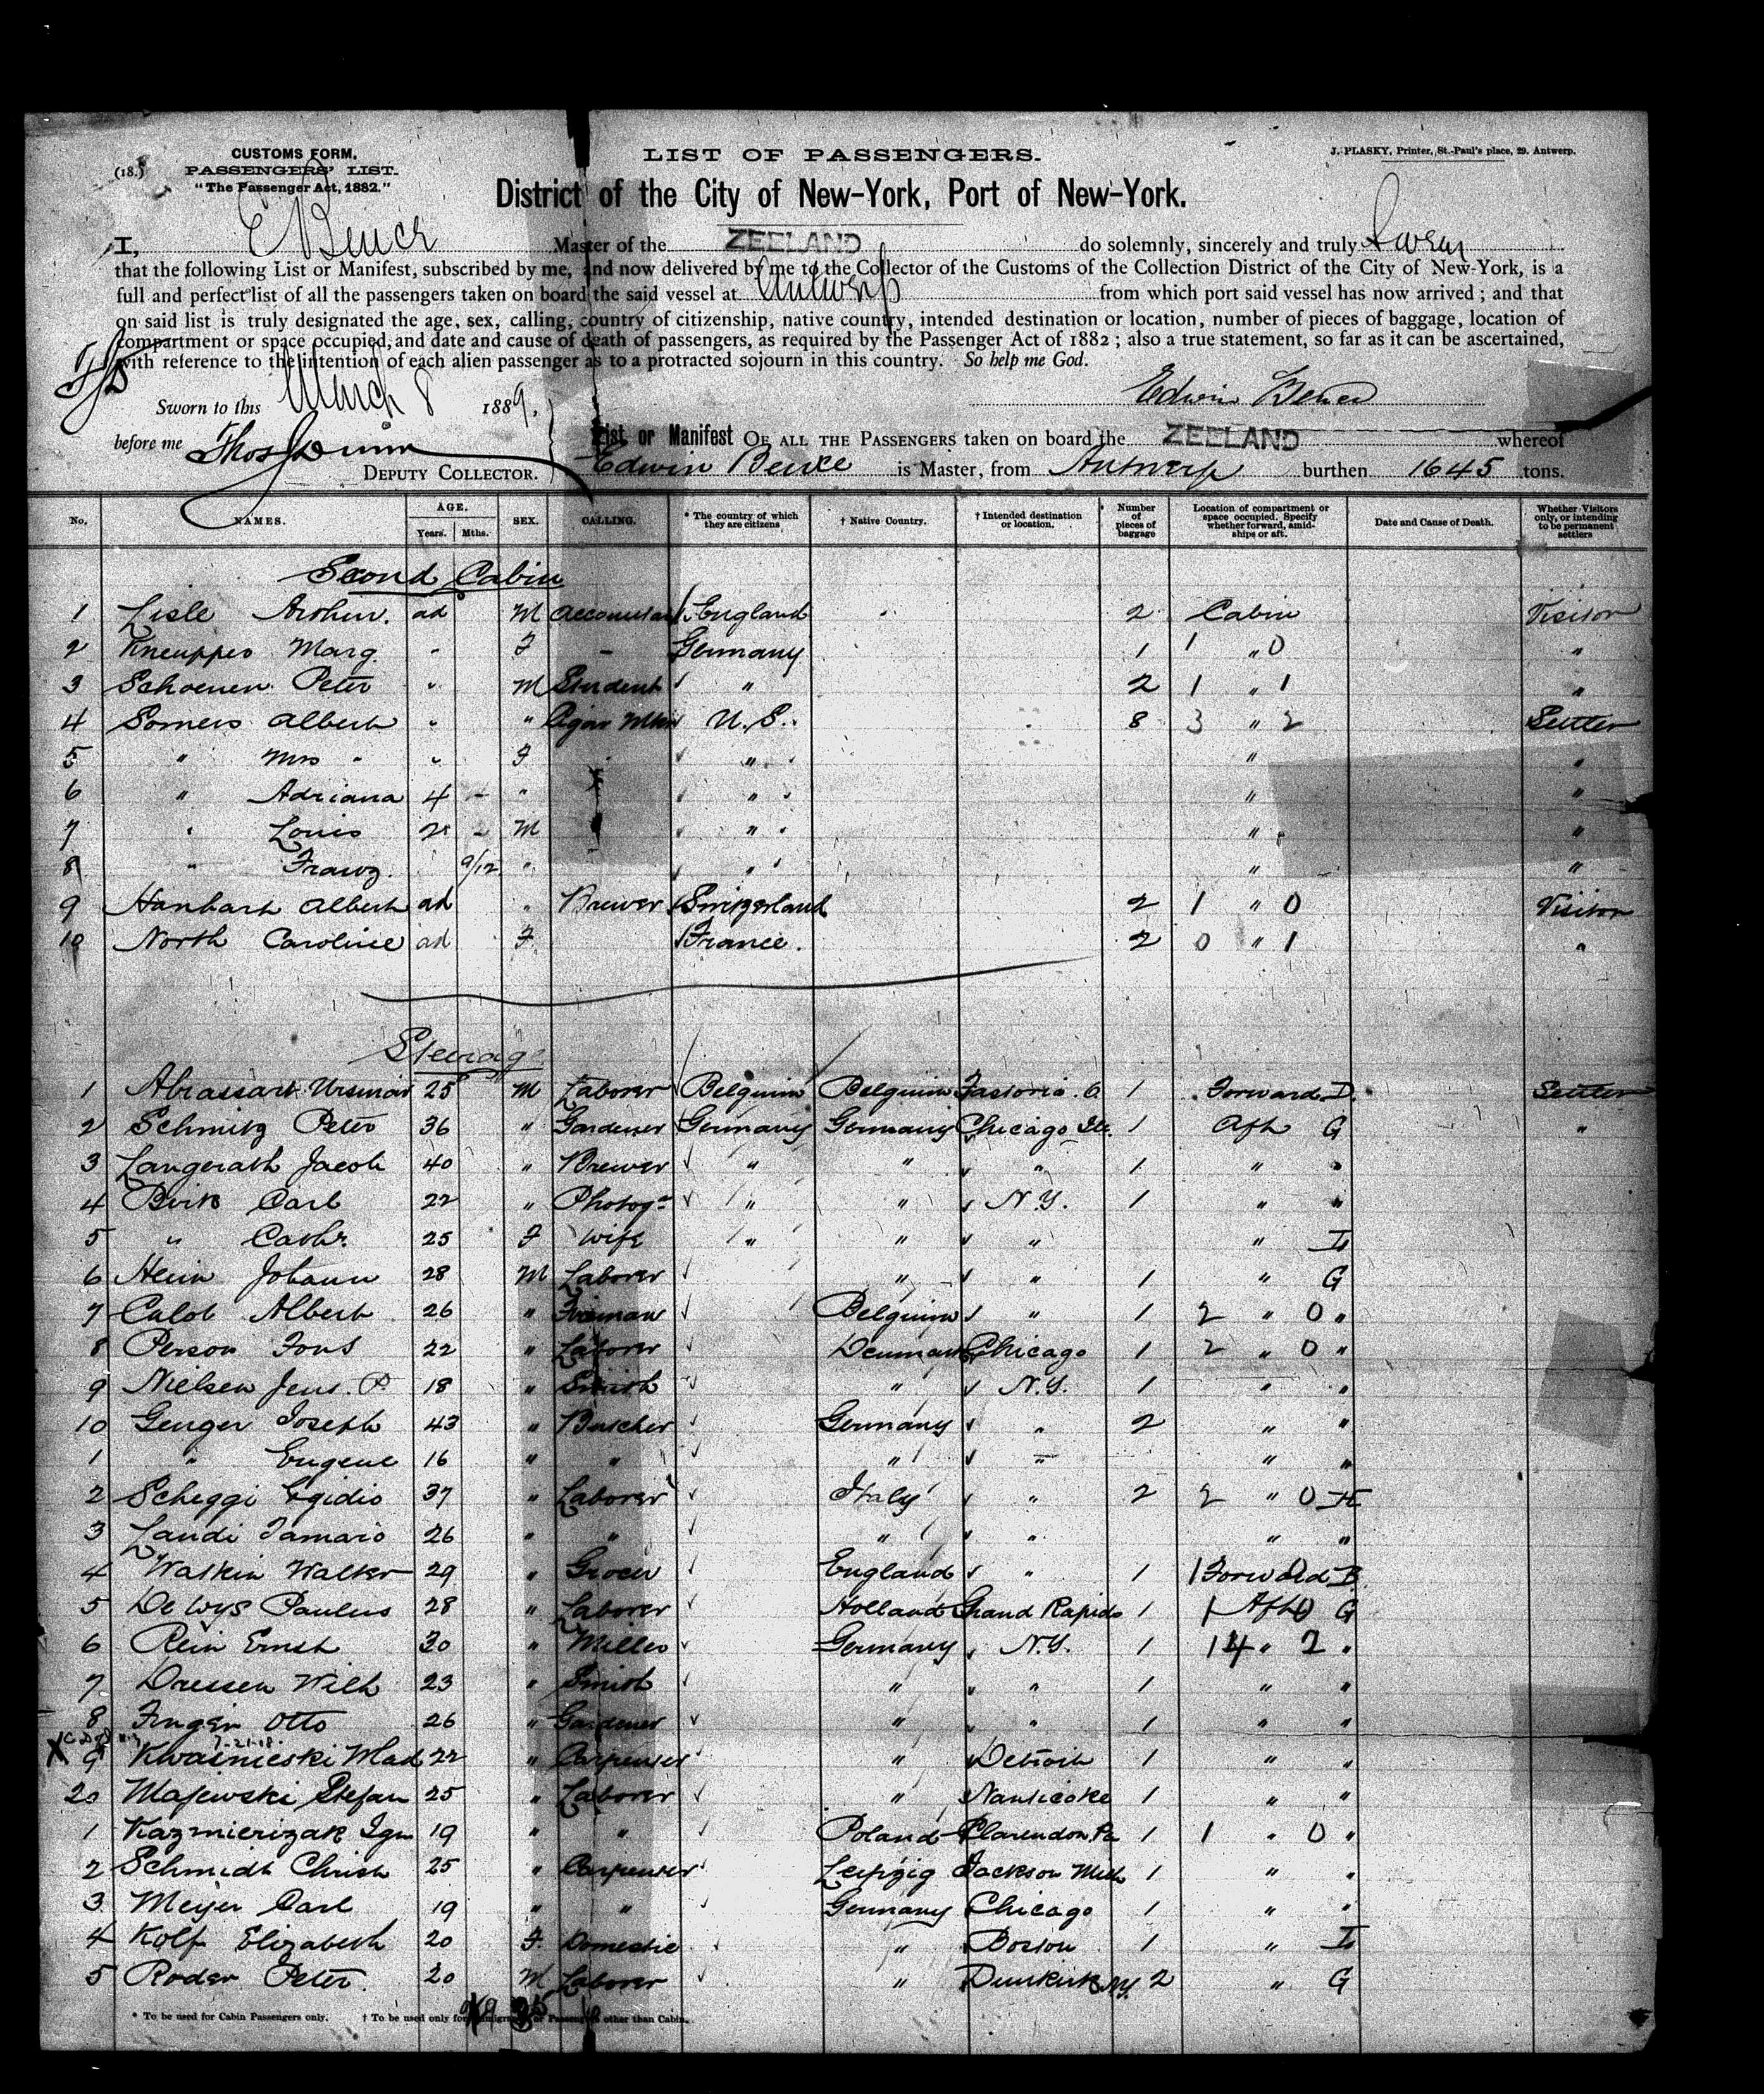 CUSTOMS FORM.
(18.) PASSENGERS' LIST.
"The Passenger Act, 1882."
LIST OF PASSENGERS.
J. PLASKY, Printer, St.-Paul's place, 29. Antwerp.
District of the City of New-York, Port of New-York.
I, E Bence Master of the ZEELAND do solemnly, sincerely and truly Swear
that the following List or Manifest, subscribed by me, and now delivered by me to the Collector of the Customs of the Collection District of the City of New-York, is a
full and perfect list of all the passengers taken on board the said vessel at Antwerp from which port said vessel has now arrived ; and that
on said list is truly designated the age, sex, calling, country of citizenship, native country, intended destination or location, number of pieces of baggage, location of
compartment or space occupied, and date and cause of death of passengers, as required by the Passenger Act of 1882 ; also a true statement, so far as it can be ascertained,
with reference to the intention of each alien passenger as to a protracted sojourn in this country. So help me God.
Sworn to this March 8 1889. Edwin Bence
before me Thos J Dunn
DEPUTY COLLECTOR.
List or Manifest OF ALL THE PASSENGERS taken on board the ZEELAND whereof
Edwin Bence is Master, from Antwerp burthen 1645 tons.
No. NAMES. AGE. Years. Mths. SEX. CALLING. * The country of which they are citizens † Native Country. † Intended destination or location. Number of pieces of baggage Location of compartment or space occupied. Specify whether forward, amidships or aft. Date and Cause of Death. Whether Visitors only, or intending to be permanent settlers
Second Cabin
1 Lisle Arthur. ad M England 2 Cabin Visitor
2 Marg. " F - Germany 1 1 " 0 "
3 Schoenen Peter " M Student " 2 1 " 1 "
4 Somers Albert " " Cigar U.S. 8 3 " 2 Settler
5 " Mrs " " F " " "
6 " Adriana 4 - " " " "
7 " Louis 2 - M " " "
8 " Franz. 9/12 " " " "
9 Hanhart Albert ad " Brewer Switzerland 2 1 " 0 Visitor
10 North Caroline ad F France. 2 0 " 1 "
Steerage
1 Abrassart Ursmar 25 M Laborer Belguim Belguim Fastoria. O 1 Forward D. Settler
2 Schmitz Peter 36 " Gardener Germany Germany Chicago Ill. 1 Aft G "
3 Langerath Jacob 40 " Brewer " " " 1 " "
4 Birk Carl 22 " Photogr " " N.Y. 1 " "
5 " Cathr. 25 F Wife " " " "
6 Hein Johann 28 M Laborer " " 1 " G
7 Calot Albert 26 " Fireman Belguim " 1 2 " 0 "
8 Person Fons 22 " Laborer Denmark Chicago 1 2 " 0 "
9 Nielsen Jens. P. 18 " Smith " N.Y. 1 " "
10 Genger Joseph 43 " Butcher Germany " 2 " "
1 " Eugene 16 " " " " " "
2 Scheggi Egidio 37 " Laborer Italy " 2 2 " 0 H
3 Landi Tamaro 26 " " " " " "
4 Watkin Walter 29 " Grocer England " 1 1 Forward 0 B.
5 De Wys Paulus 28 " Laborer Holland Grand Rapids 1 1 Aft 0 G
6 Rein Ernst 30 " Miller Germany N.Y. 1 14 " 2 "
7 Daessen Wilh 23 " Smith " " 1 " "
8 Finger Otto 26 " Gardener " " 1 " "
X 7-21-18.
9 Kwasnieski Wlad 22 " Carpenter " Detroit 1 " "
20 Majewski Stefan 25 " Laborer " Nanticoke 1 " "
1 Kazmierizak Ign 19 " " Poland Clarendon Pa 1 1 " 0 "
2 Schmidt Christ 25 " Carpenter Leipzig Jackson Mich 1 " "
3 Meyer Carl 19 " " Germany Chicago 1 " "
4 Kolf Elizabeth 20 F. Domestic " Boston 1 "
5 Roder Peter 20 M Laborer " Dunkirk N.Y. 2 " G
* To be used for Cabin Passengers only. † To be used only for Immigrants or Passengers other than Cabin.